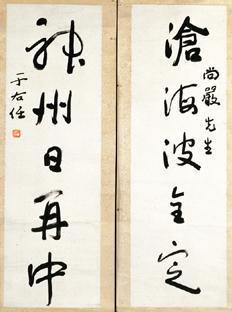 尚嚴先生
滄海波全定
神州日再中
于右任